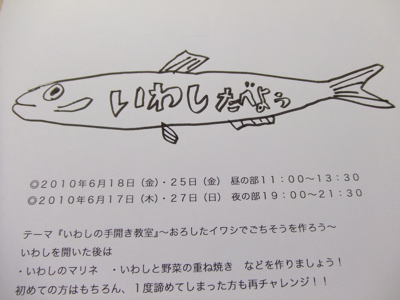 いわしたべよう
◎2010年6月18日（金）・25日（金） 昼の部11：00～13：30
◎2010年6月17日（木）・27日（日） 夜の部19：00～21：30
テーマ『いわしの手開き教室』～おろしたイワシでごちそうを作ろう～
いわしを開いた後は
・いわしのマリネ ・いわしと野菜の重ね焼き などを作りましょう！
初めての方はもちろん、１度諦めてしまった方も再チャレンジ！！